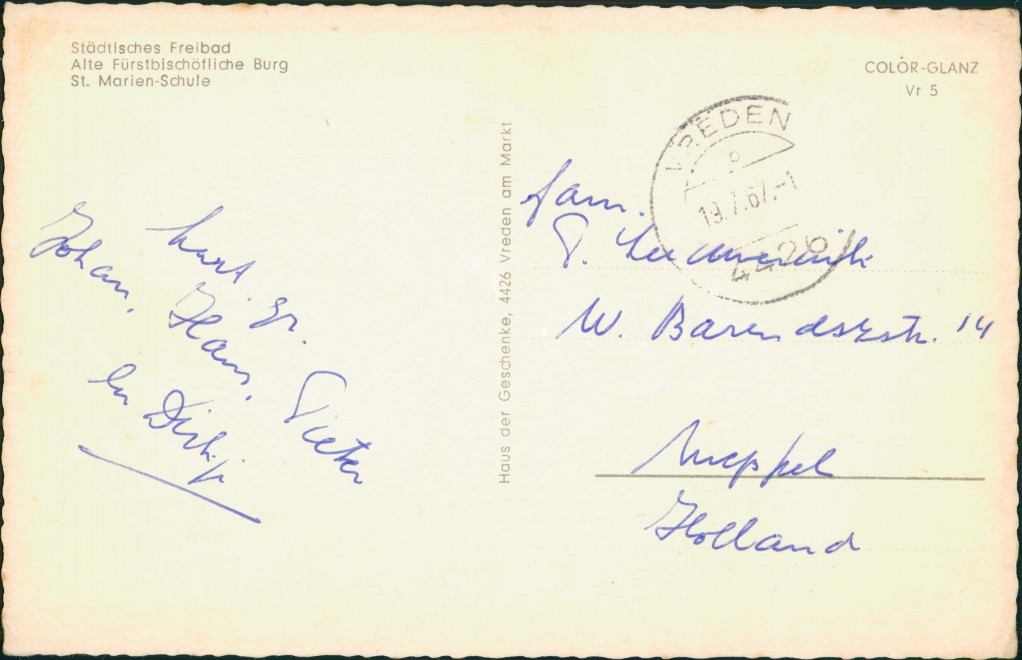 Städtisches Freibad
Alte Fürstbischöfliche Burg
St. Marien-Schule
COLOR-GLANZ
Vr 5
Haus der Geschenke, 4426 Vreden am Markt
VREDEN
19.7.67.-1
4426
hart. gr.
Johan, Hans, Pieter
en Dirkje
fam.
P.
W. Barendszstr. 14
Meppel
Holland